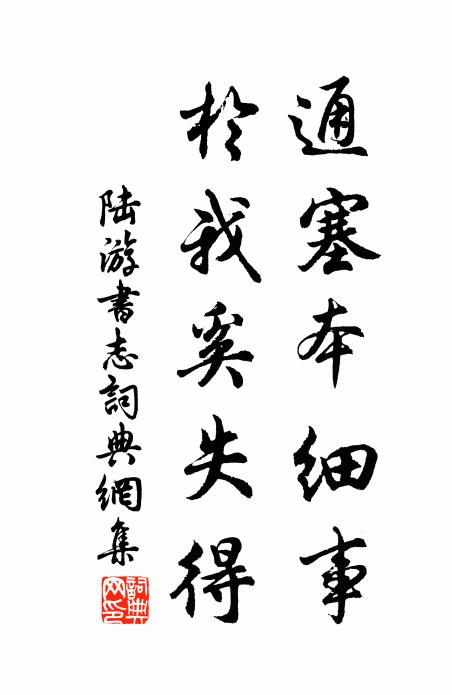 通塞本细事
於我奚失得
陆游書志詞典網集
詞典网印